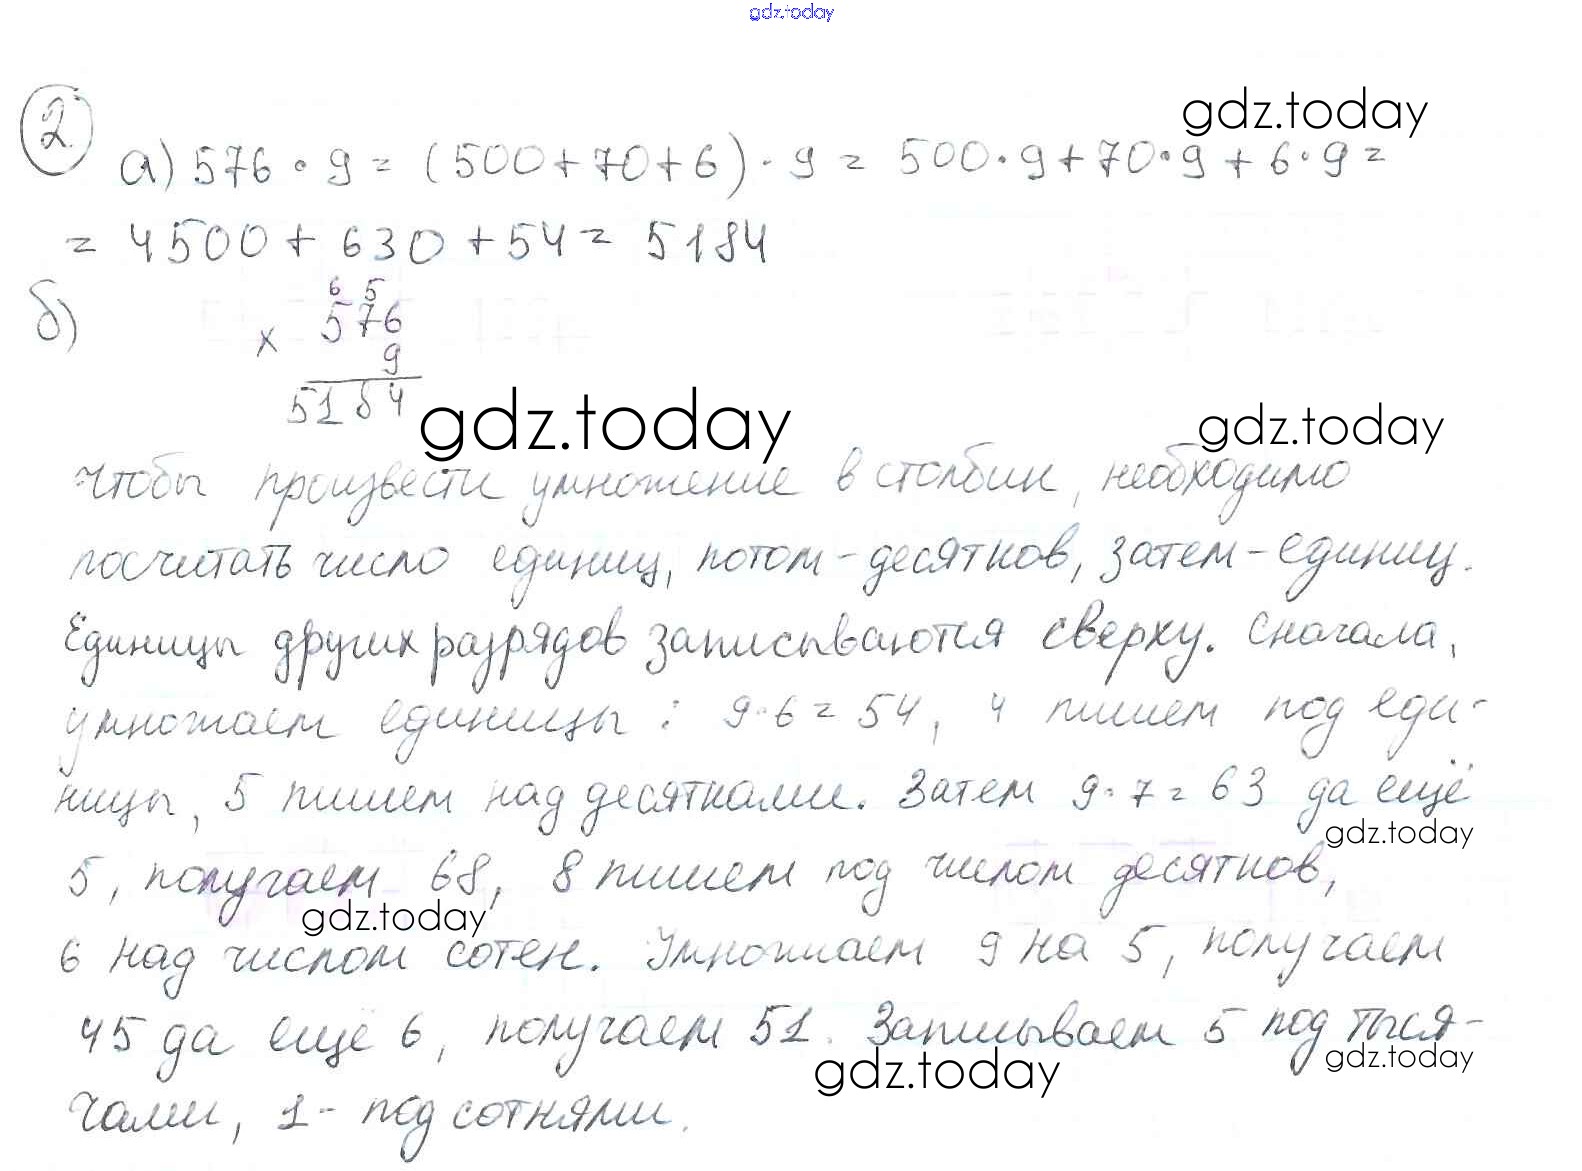 gdz.today
2
gdz.today
а) 576 · 9 = (500 + 70 + 6) · 9 = 500 · 9 + 70 · 9 + 6 · 9 =
= 4500 + 630 + 54 = 5184
б)
6 5
576
×
9
5184
gdz.today
gdz.today
Чтобы произвести умножение в столбик, необходимо
посчитать число единиц, потом - десятков, затем - единиц.
Единицы других разрядов записываются сверху. Сначала,
умножаем единицы: 9·6 = 54, 4 пишем под еди-
ницы, 5 пишем над десятками. Затем 9·7 = 63 да ещё
gdz.today
5, получаем 68, 8 пишем под числом десятков,
gdz.today
6 над числом сотен. Умножаем 9 на 5, получаем
45 да ещё 6, получаем 51. Записываем 5 под тыся-
gdz.today
gdz.today
чами, 1 - под сотнями.